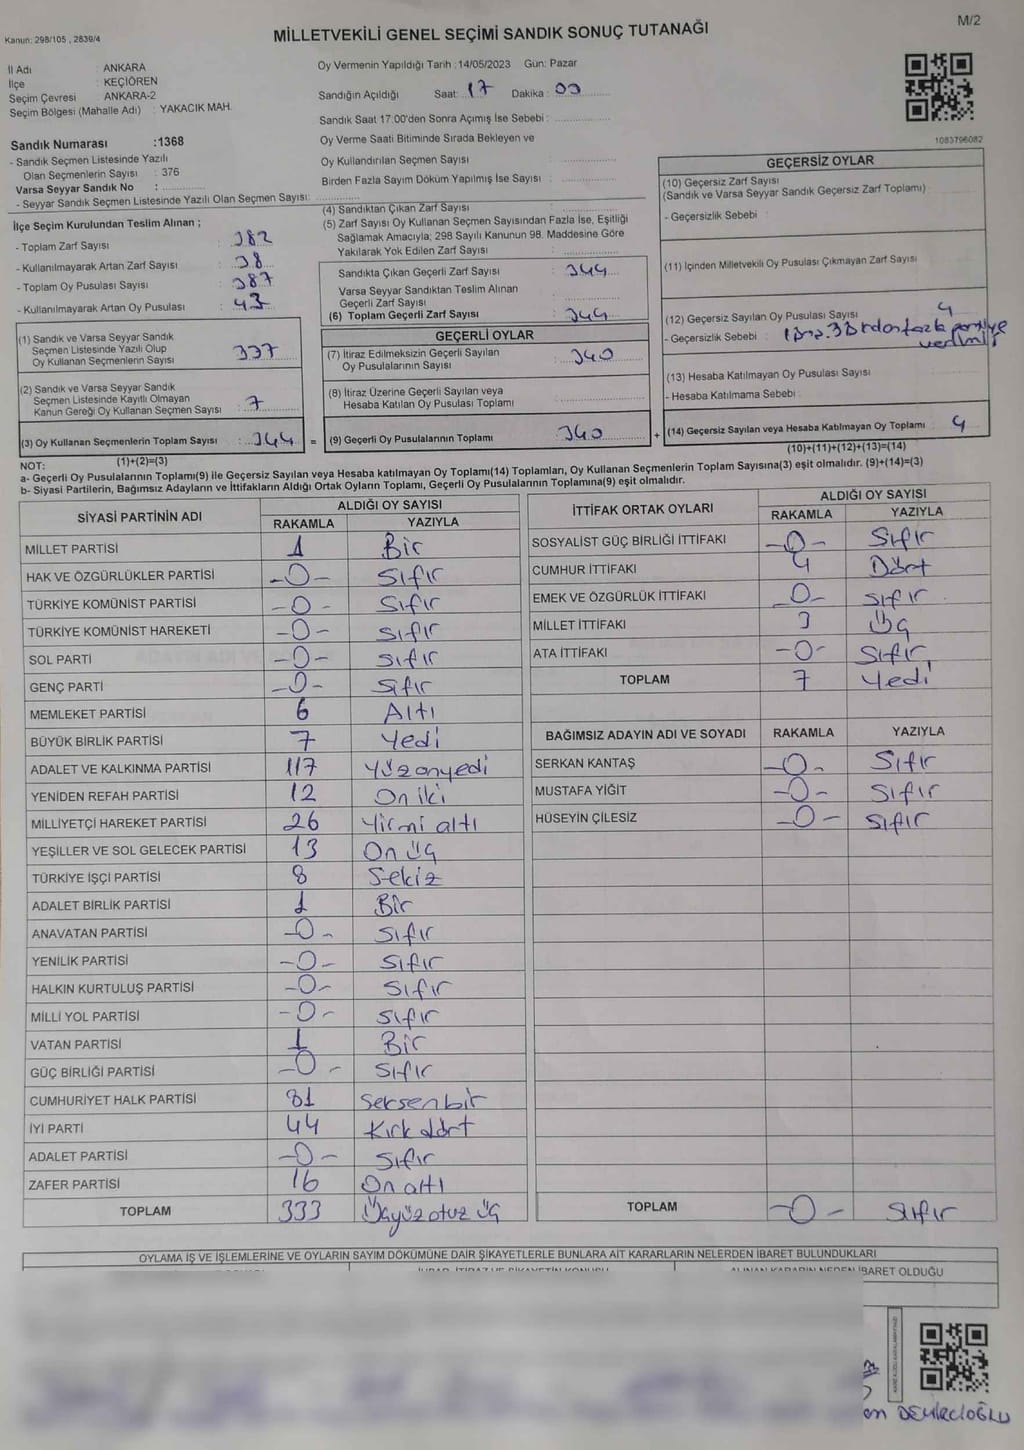 M/2
Kanun: 298/105 , 2839/4
MİLLETVEKİLİ GENEL SEÇİMİ SANDIK SONUÇ TUTANAĞI
İl Adı ANKARA
İlçe : KEÇİÖREN
Seçim Çevresi ANKARA-2
Seçim Bölgesi (Mahalle Adı) : YAKACIK MAH.
Sandık Numarası :1368
- Sandık Seçmen Listesinde Yazılı
Olan Seçmenlerin Sayısı : 376
Varsa Seyyar Sandık No :
- Seyyar Sandık Seçmen Listesinde Yazılı Olan Seçmen Sayısı:
Oy Vermenin Yapıldığı Tarih :14/05/2023 Gün: Pazar
Sandığın Açıldığı Saat: 17 Dakika : 00
Sandık Saat 17:00'den Sonra Açımış İse Sebebi :
Oy Verme Saati Bitiminde Sırada Bekleyen ve
Oy Kullandırılan Seçmen Sayısı :
Birden Fazla Sayım Döküm Yapılmış İse Sayısı :
1083796082
İlçe Seçim Kurulundan Teslim Alınan ;
- Toplam Zarf Sayısı : 382
- Kullanılmayarak Artan Zarf Sayısı : 38
- Toplam Oy Pusulası Sayısı : 387
- Kullanılmayarak Artan Oy Pusulası : 43
(1) Sandık ve Varsa Seyyar Sandık
Seçmen Listesinde Yazılı Olup
Oy Kullanan Seçmenlerin Sayısı 337
(2) Sandık ve Varsa Seyyar Sandık
Seçmen Listesinde Kayıtlı Olmayan
Kanun Gereği Oy Kullanan Seçmen Sayısı : 7
(3) Oy Kullanan Seçmenlerin Toplam Sayısı : 344 =
(1)+(2)=(3)
(4) Sandıktan Çıkan Zarf Sayısı :
(5) Zarf Sayısı Oy Kullanan Seçmen Sayısından Fazla İse, Eşitliği
Sağlamak Amacıyla; 298 Sayılı Kanunun 98. Maddesine Göre
Yakılarak Yok Edilen Zarf Sayısı :
Sandıkta Çıkan Geçerli Zarf Sayısı : 344
Varsa Seyyar Sandıktan Teslim Alınan
Geçerli Zarf Sayısı :
(6) Toplam Geçerli Zarf Sayısı : 344
GEÇERLİ OYLAR
(7) İtiraz Edilmeksizin Geçerli Sayılan
Oy Pusulalarının Sayısı : 340
(8) İtiraz Üzerine Geçerli Sayılan veya
Hesaba Katılan Oy Pusulası Toplamı :
(9) Geçerli Oy Pusulalarının Toplamı : 340 +
GEÇERSİZ OYLAR
(10) Geçersiz Zarf Sayısı :
(Sandık ve Varsa Seyyar Sandık Geçersiz Zarf Toplamı)
- Geçersizlik Sebebi :
(11) İçinden Milletvekili Oy Pusulası Çıkmayan Zarf Sayısı :
(12) Geçersiz Sayılan Oy Pusulası Sayısı : 4
- Geçersizlik Sebebi : fazla partiye
(13) Hesaba Katılmayan Oy Pusulası Sayısı :
- Hesaba Katılmama Sebebi :
(14) Geçersiz Sayılan veya Hesaba Katılmayan Oy Toplamı : 4
(10)+(11)+(12)+(13)=(14)
NOT:
a- Geçerli Oy Pusulalarının Toplamı(9) ile Geçersiz Sayılan veya Hesaba katılmayan Oy Toplamı(14) Toplamları, Oy Kullanan Seçmenlerin Toplam Sayısına(3) eşit olmalıdır. (9)+(14)=(3)
b- Siyasi Partilerin, Bağımsız Adayların ve İttifakların Aldığı Ortak Oyların Toplamı, Geçerli Oy Pusulalarının Toplamına(9) eşit olmalıdır.
SİYASİ PARTİNİN ADI ALDIĞI OY SAYISI
RAKAMLA YAZIYLA
MİLLET PARTİSİ 1 Bir
HAK VE ÖZGÜRLÜKLER PARTİSİ -0- Sıfır
TÜRKİYE KOMÜNİST PARTİSİ -0- Sıfır
TÜRKİYE KOMÜNİST HAREKETİ -0- Sıfır
SOL PARTİ -0- Sıfır
GENÇ PARTİ -0- Sıfır
MEMLEKET PARTİSİ 6 Altı
BÜYÜK BİRLİK PARTİSİ 7 Yedi
ADALET VE KALKINMA PARTİSİ 117 Yüzonyedi
YENİDEN REFAH PARTİSİ 12 On iki
MİLLİYETÇİ HAREKET PARTİSİ 26 Yirmi altı
YEŞİLLER VE SOL GELECEK PARTİSİ 13 On üç
TÜRKİYE İŞÇİ PARTİSİ 8 Sekiz
ADALET BİRLİK PARTİSİ 1 Bir
ANAVATAN PARTİSİ -0- Sıfır
YENİLİK PARTİSİ -0- Sıfır
HALKIN KURTULUŞ PARTİSİ -0- Sıfır
MİLLİ YOL PARTİSİ -0- Sıfır
VATAN PARTİSİ 1 Bir
GÜÇ BİRLİĞİ PARTİSİ -0- Sıfır
CUMHURİYET HALK PARTİSİ 81 Seksenbir
İYİ PARTİ 44 Kırk dört
ADALET PARTİSİ -0- Sıfır
ZAFER PARTİSİ 16 On altı
TOPLAM 333 Üçyüz otuz üç
İTTİFAK ORTAK OYLARI ALDIĞI OY SAYISI
RAKAMLA YAZIYLA
SOSYALİST GÜÇ BİRLİĞİ İTTİFAKI -0- Sıfır
CUMHUR İTTİFAKI 4 Dört
EMEK VE ÖZGÜRLÜK İTTİFAKI -0- Sıfır
MİLLET İTTİFAKI 3 Üç
ATA İTTİFAKI -0- Sıfır
TOPLAM 7 Yedi
BAĞIMSIZ ADAYIN ADI VE SOYADI RAKAMLA YAZIYLA
SERKAN KANTAŞ -0- Sıfır
MUSTAFA YİĞİT -0- Sıfır
HÜSEYİN ÇİLESİZ -0- Sıfır
TOPLAM -0- Sıfır
OYLAMA İŞ VE İŞLEMLERİNE VE OYLARIN SAYIM DÖKÜMÜNE DAİR ŞİKAYETLERLE BUNLARA AİT KARARLARIN NELERDEN İBARET BULUNDUKLARI
ALINAN KARARIN NEDEN İBARET OLDUĞU
DEMİRCİOĞLU